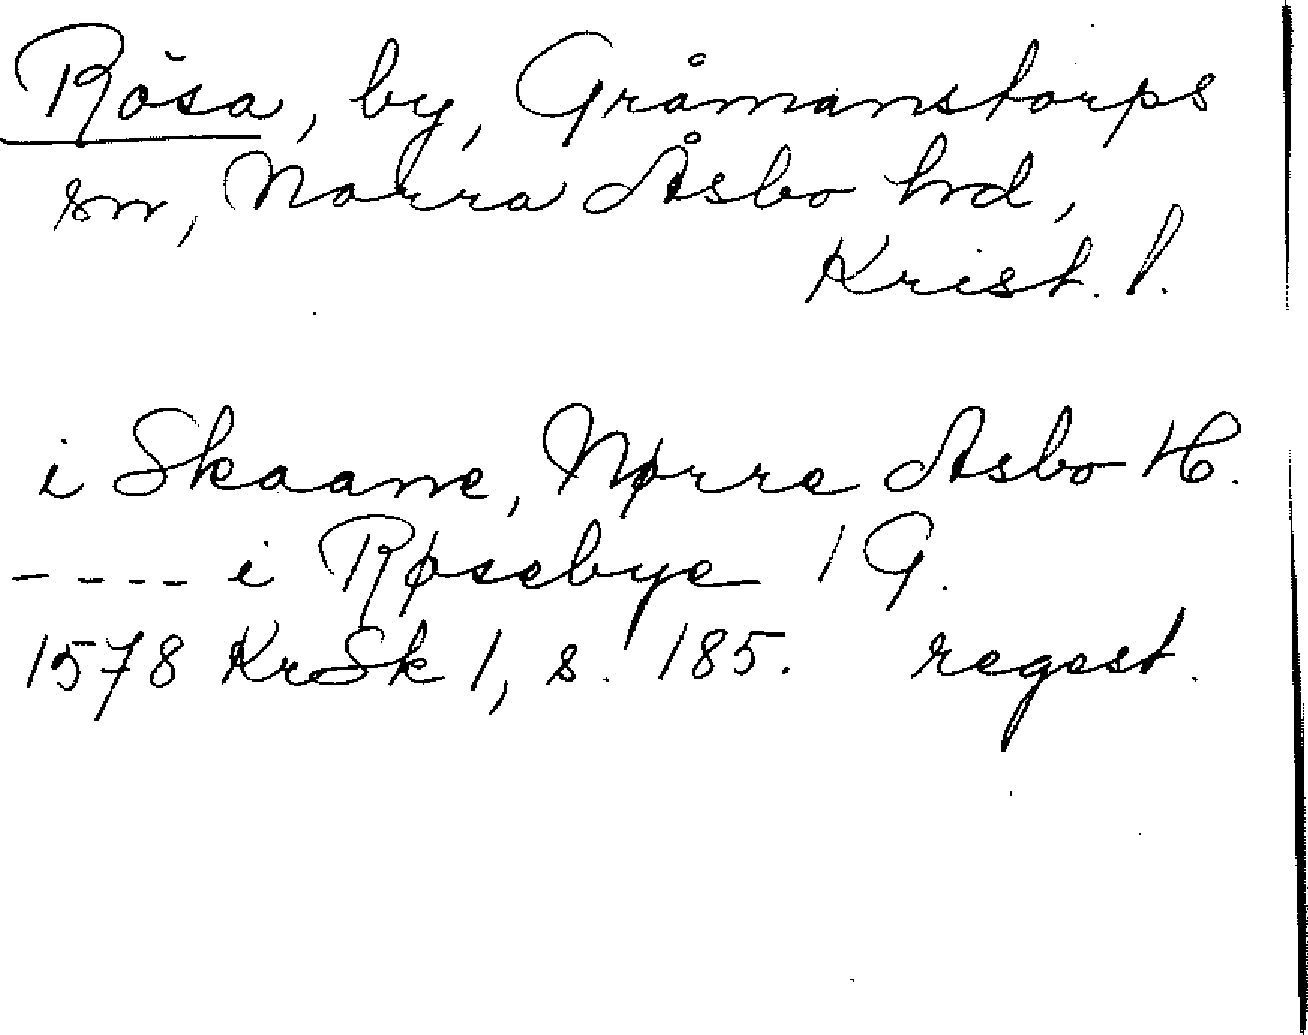 Rösa, by, Gråmanstorps
sn, Norra Åsbo hd,
Krist. l.
i Skaane, Nørre Asbo H.
---- i Røsebye 1 G.
1578 KrSk 1, s. 185. regest.